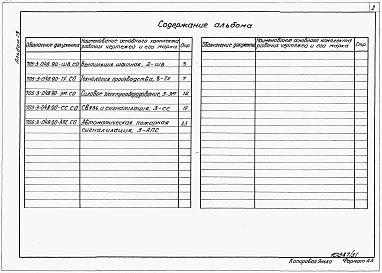 2
Содержание альбома
Альбом
Обозначение документа
Наименование основного комплекта
рабочих чертежей и его марка
Стр.
Обозначение документа
Наименование основного комплекта
рабочих чертежей и его марка
Стр.
705-3-048.90-ШВ.СО
5
705-3-048.90-ТХ.СО
Технология производства,
7
705-3-048.90-ЭМ.СО
Силовое электрооборудование,
12
705-3-048.90-СС.СО
Связь и сигнализация, 3-СС
19
705-3-048.90-АПС.СО
Автоматическая пожарная
сигнализация, 3-АПС
Копировал
Формат А3